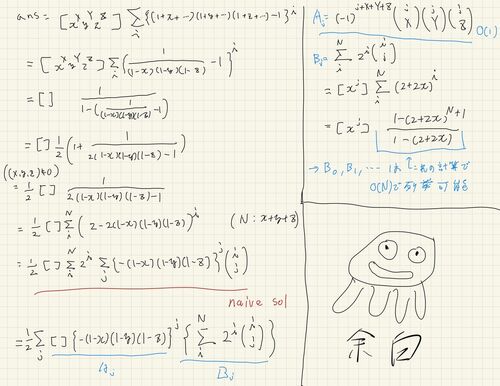 ans = [x^X y^Y z^Z] Σ_i {(1+x+⋯)(1+y+⋯)(1+z+⋯)-1}^i
= [x^X y^Y z^Z] Σ_i (1/((1-x)(1-y)(1-z)) -1)^i
= [] 1/(1-(1/((1-x)(1-y)(1-z))-1))
= [] 1/2 (1+ 1/(2(1-x)(1-y)(1-z)-1))
((x,y,z)≠0)
= 1/2 [] 1/(2(1-x)(1-y)(1-z)-1)
= 1/2 [] Σ_i^N (2-2(1-x)(1-y)(1-z))^i (N: x+y+z)
= 1/2 [] Σ_i^N 2^i Σ_j {-(1-x)(1-y)(1-z)}^j (i j)
naive sol
= 1/2 Σ_j [] {-(1-x)(1-y)(1-z)}^j {Σ_i^N 2^i (i j)}
A_j B_j
A_j = (-1)^{j+X+Y+Z} (j X)(j Y)(j Z) O(1)
B_j = Σ_i^N 2^i (i j)
= [x^j] Σ_i^N (2+2x)^i
= [x^j] (1-(2+2x)^{N+1})/(1-(2+2x))
→ B_0, B_1, ⋯ は
O(N)で列挙可能
余白